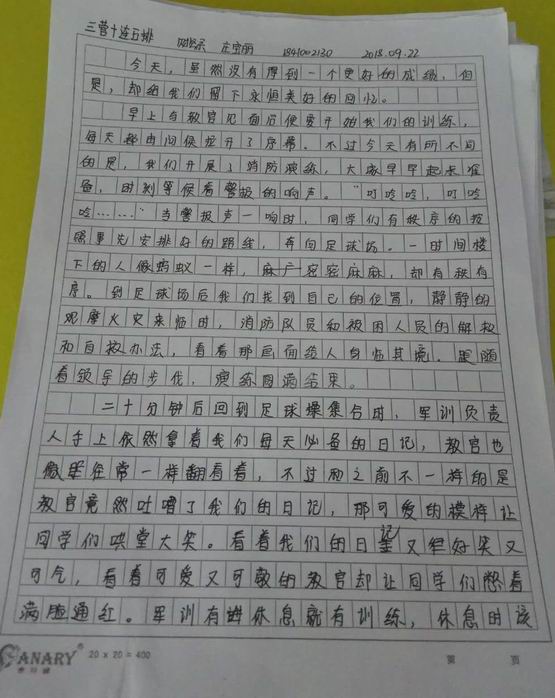 三营十连五排 庄宝丽 1841002130 2018.09.22
今天，虽然没有得到一个更好的成绩，但
是，却给我们留下永恒美好的回忆。
早上与教官见面后便要开始我们的训练，
每天都由问候拉开了序幕。不过今天有所不同
的是，我们开展了消防演练，大家早早起床准
备，时刻等候着警报的响声。“叮呤呤，叮呤
呤……”当警报声一响时，同学们有秩序的按
照事先安排好的路线，奔向足球场。一时间楼
下的人像蚂蚁一样，麻广密密麻麻，却有秩有
序。到足球场后我们找到自己的位置，静静的
观摩火灾来临时，消防队员和被困人员的解救
和自救办法，看着那画面给人身临其境。跟随
着领导的步伐，演练圆满结束。
二十分钟后回到足球操集合时，军训负责
人手上依然拿着我们每天必备的日记，教官也
像往常一样翻看着，不过和之前不一样的是
教官竟然吐嘈了我们的日记，那可爱的模样让
同学们哄堂大笑。看着我们的日记又好笑又
可气，看着可爱又可敬的教官却让同学们憋着
满脸通红。军训有休息就有训练，休息时该
CANARY 20 x 20 = 400 第 页